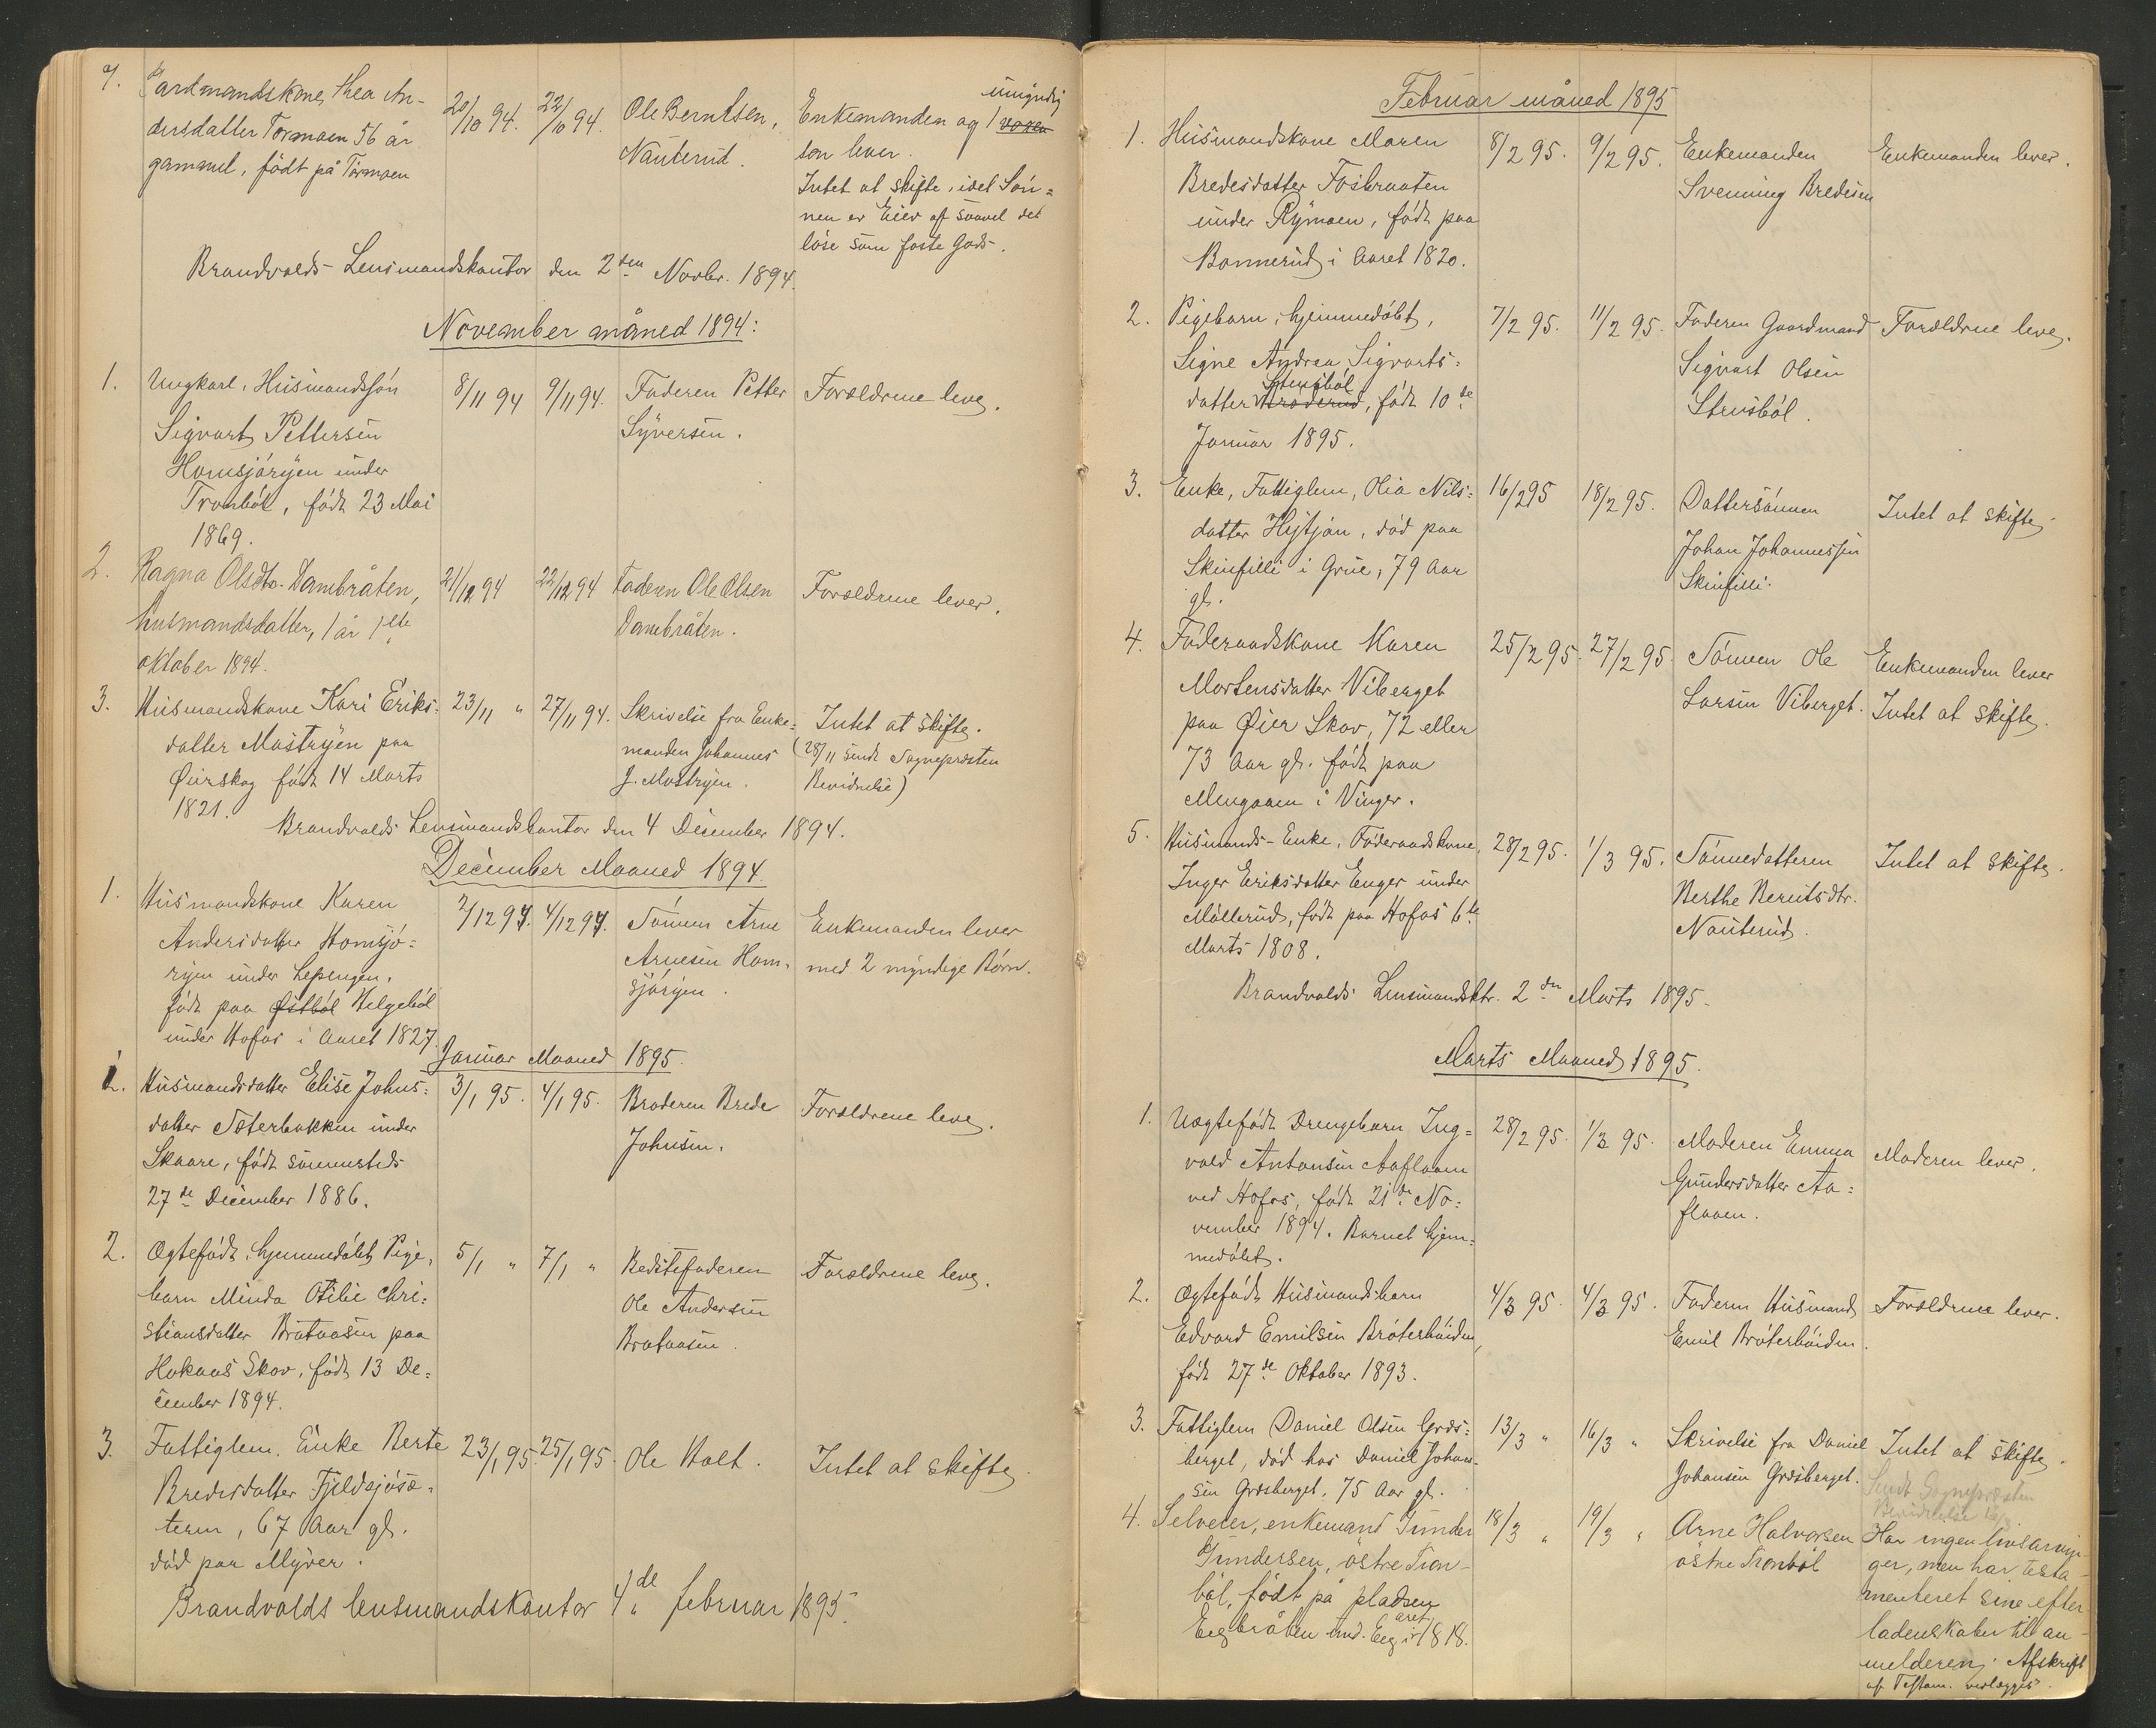 7. Gardmandskone, Thea An-
dersdatter Tormoen 56 år
gammel, født på Tormoen
20/10 94. 22/10 94.
Ole Berntsen,
Nauterud.
umyndig
Enkemanden og 1 voxen
søn lever.
Intet at skifte, idet Søn=
nen er Eier af saavel det
løse som faste Gods.
Brandvolds Lensmandskontor den 2den Novbr. 1894.
November måned 1894:
1. Ungkarl, Husmandssøn
Sigvart Pettersen
Homsjøryen under
Tronbøl, født 23 Mai
1869.
8/11 94 9/11 94.
Faderen Petter
Syversen.
Forældrene leve.
2. Ragna Olsdtr. Dambråten,
husmandsdatter, 1 år 1ste
oktober 1894.
21/12 94 22/12 94
Faderen Ole Olsen
Dambråten.
Forældrene lever.
3. Husmandskone Kari Eriks=
datter Mastryen paa
Øierskog født 14 Marts
1821.
23/11 " 27/11 94.
Skrivelse fra Enke=
manden Johannes
J. Mastryen.
Intet at skifte.
(28/11 sendt Sognepræsten
Bevidnelse)
Brandvolds Lensmandskontor den 4 December 1894.
December Maaned 1894.
1. Husmandskone Karen
Andersdatter Homsjø=
ryen under Lepengen,
født paa Østbøl Helgebøl
under Hofos i Aaret 1827.
2/12 94. 4/12 94.
Sønnen Arne
Arnesen Hom=
sjøryen.
Enkemanden lever
med 2 myndige Børn.
Januar Maaned 1895.
1. Husmandsdatter Elise Johns=
datter Sæterbakken under
Skaare, født sammesteds
27de December 1886.
3/1 95. 4/1 95.
Broderen Brede
Johnsen.
Forældrene leve.
2. Ægtefødt, hjemmedøbt Pige=
barn Minda Otilie Chri=
stiansdatter Brataasen paa
Hokaas Skov, født 13 De=
cember 1894.
5/1 " 7/1 "
Bedstefaderen
Ole Andersen
Brataasen.
Forældrene leve.
3. Fattiglem. Enke Berte
Bredesdatter Fjeldsjøsæ=
teren, 67 Aar gl.
død paa Myrer.
23/1 95. 25/1 95.
Ole Holt.
Intet at skifte.
Brandvolds lensmandskontor 4de februar 1895.
Februar måned 1895
1. Husmandskone Maren
Bredesdatter Fosbraaten
under Rymoen, født paa
Bonnerud i Aaret 1820.
8/2 95. 9/2 95.
Enkemanden
Svenning Bredesen
Enkemanden lever.
2. Pigebarn, hjemmedøbt,
Signe Andrea Sigvarts=
Strusbøl
datter, født 10de
Januar 1895.
7/2 95. 11/2 95.
Faderen Gaardmand
Sigvart Olsen
Strusbøl.
Forældrene leve.
3. Enke, Fattiglem, Olia Nils=
datter Hytjan, død paa
Skinfilli i Grue, 79 Aar
gl.
16/2 95 18/2 95.
Dattersønnen
Johan Johannessen
Skinfilli.
Intet at skifte.
4. Føderaadskone Karen
Mortensdatter Viberget
paa Øier Skov, 72 eller
73 Aar gl. født paa
Mengaaen i Vinger.
25/2 95. 27/2 95.
Sønnen Ole
Larsen Viberget.
Enkemanden lever
Intet at skifte.
5. Husmands-Enke, Føderaadskone,
Inger Eriksdatter Enger under
Møllerud, født paa Hofos 6te
Marts 1808.
28/2 95. 1/3 95.
Sønnedatteren
Berthe Berntsdtr.
Nauterud.
Intet at skifte.
Brandvolds Lensmandsktr. 2den Marts 1895.
Marts Maaned 1895.
1. Uægtefødt Drengebarn Ing=
vald Antonsen Aaflaaen
ved Hofos, født 21de No=
vember 1894. Barnet hjem=
medøbt.
28/2 95. 1/3 95.
Moderen Emma
Gundersdatter Aa=
flaaen.
Moderen lever.
2. Ægtefødt Husmandsbarn
Edvard Emilsen Bråterhøiden,
født 27de Oktober 1893.
4/3 95. 4/3 95.
Faderen Husmand
Emil Bråterhøiden.
Forældrene lever.
3. Fattiglem Daniel Olsen Græs=
berget, død hos Daniel Johan=
sen Græsberget, 75 Aar gl.
13/3 " 16/3 "
Skrivelse fra Daniel
Johansen Græsberget.
Intet at skifte.
Sendt Sognepræsten
Bevidnelse 16/3
4. Selveier, enkemand Gunder
Gundersen, østre Tron-
bøl, født på pladsen
året
Eegbråten und. Eeg i 1818.
18/3 " 19/3 "
Arne Halvorsen
østre Tronbøl
Har ingen livsarvin-
ger, men har testa-
menteret sine efter
ladenskaber til an-
melderen. Afskrift
af Testam. vedlægges.